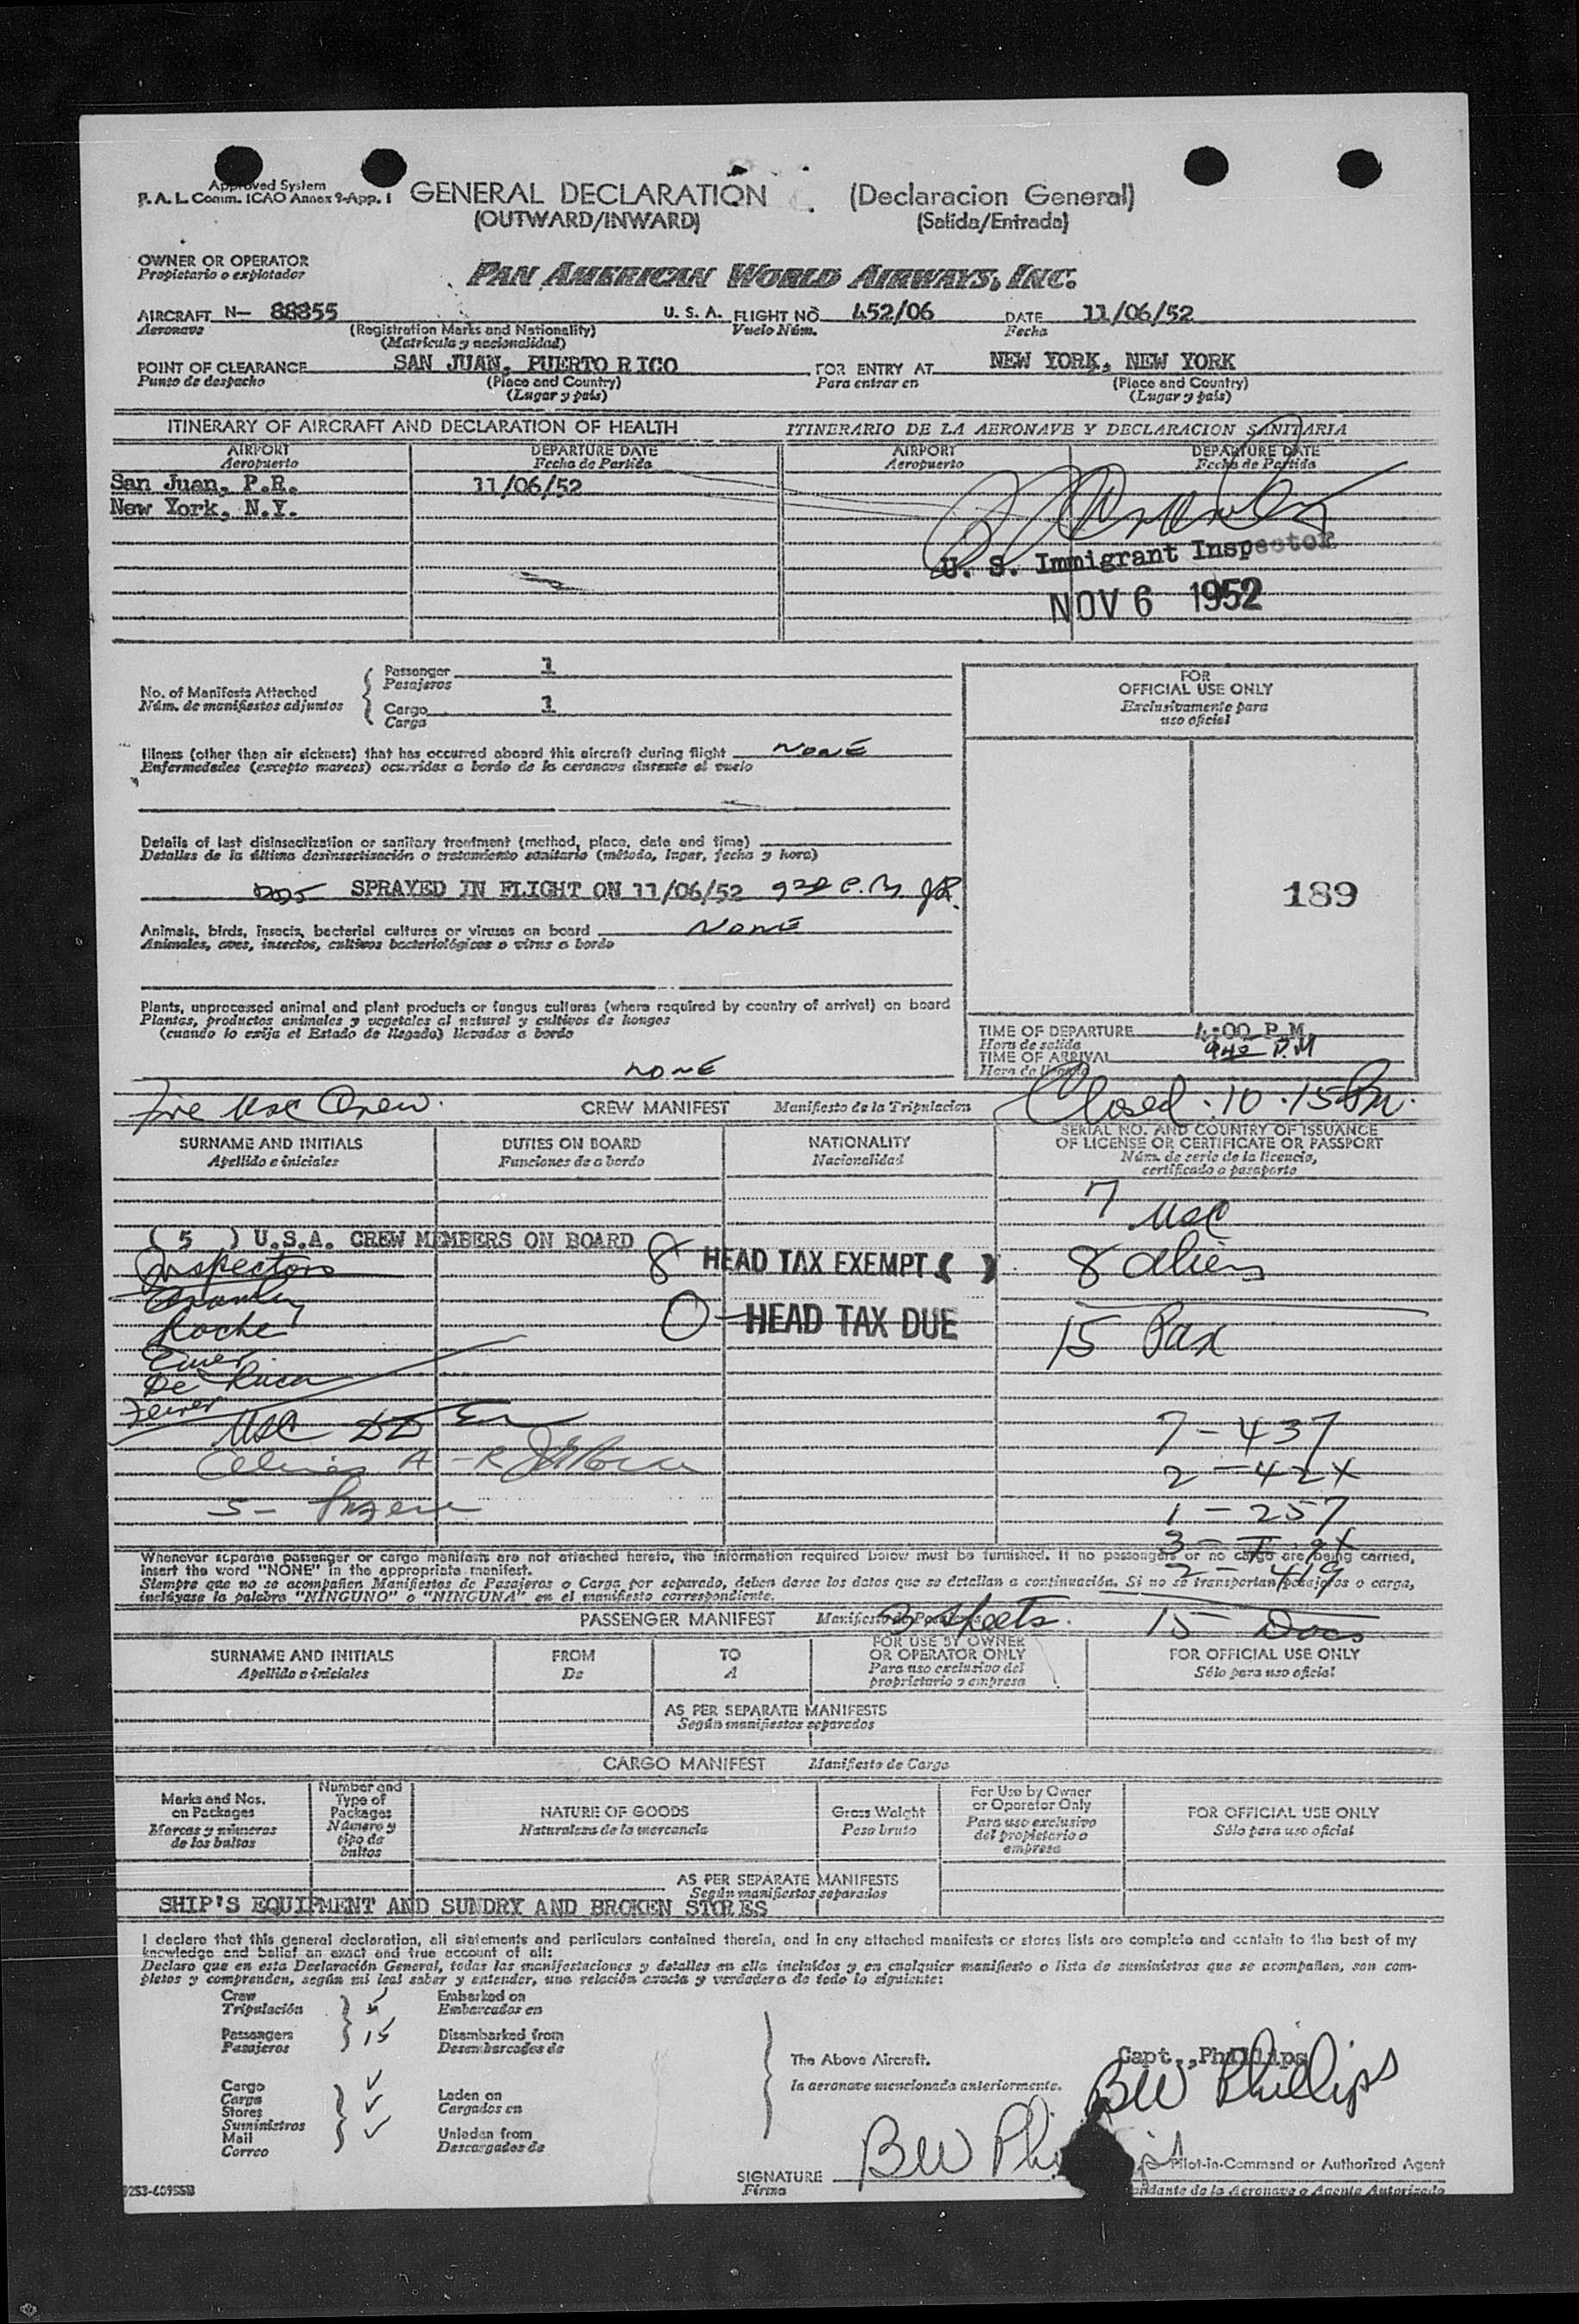 Approved System
P. A. L. Comm. ICAO Annex 9-App. 1
GENERAL DECLARATION (Declaracion General)
(OUTWARD/INWARD) (Salida/Entrada)
OWNER OR OPERATOR
Propietario o explotador
PAN AMERICAN WORLD AIRWAYS, INC.
AIRCRAFT N- 88855 U. S. A. FLIGHT NO 452/06 DATE 11/06/52
Aeronave (Registration Marks and Nationality) Vuelo Núm. Fecha
(Matricula y nacionalidad)
POINT OF CLEARANCE SAN JUAN, PUERTO RICO FOR ENTRY AT NEW YORK, NEW YORK
Punto de despacho (Place and Country) Para entrar en (Place and Country)
(Lugar y país) (Lugar y país)
ITINERARY OF AIRCRAFT AND DECLARATION OF HEALTH ITINERARIO DE LA AERONAVE Y DECLARACION SANITARIA
AIRPORT DEPARTURE DATE AIRPORT DEPARTURE DATE
Aeropuerto Fecha de Partida Aeropuerto Fecha de Partida
San Juan, P.R. 11/06/52
New York, N.Y.
U. S. Immigrant Inspector
NOV 6 1952
No. of Manifests Attached
Núm. de manifiestos adjuntos
Passenger 1
Pasajeros
Cargo 1
Carga
FOR
OFFICIAL USE ONLY
Exclusivamente para
uso oficial
Illness (other than air sickness) that has occurred aboard this aircraft during flight NONE
Enfermedades (excepto mareos) ocurridas a bordo de la aeronave durante el vuelo
Details of last disinsectization or sanitary treatment (method, place, date and time)
Detalles de la última desinsectisación o tratamiento sanitario (método, lugar, fecha y hora)
SPRAYED IN FLIGHT ON 11/06/52
189
Animals, birds, insects, bacterial cultures or viruses on board NONE
Animales, aves, insectos, cultivos bacteriológicos o virus a bordo
Plants, unprocessed animal and plant products or fungus cultures (where required by country of arrival) on board
Plantas, productos animales y vegetales al natural y cultivos de hongos
(cuando lo exija el Estado de llegada) llevados a bordo
NONE
TIME OF DEPARTURE 4:00 P.M.
Hora de salida
TIME OF ARRIVAL 942 P.M
Hora de llegada
Five USC Crew. CREW MANIFEST Manifiesto de la Tripulacion Closed. 10.15 Pm.
SURNAME AND INITIALS DUTIES ON BOARD NATIONALITY SERIAL NO. AND COUNTRY OF ISSUANCE
Apellido e iniciales Funciones de a bordo Nacionalidad OF LICENSE OR CERTIFICATE OR PASSPORT
Núm. de serie de la licencia,
certificado o pasaporte
7 USC
( 5 ) U.S.A. CREW MEMBERS ON BOARD
8 HEAD TAX EXEMPT ( ) 8 Aliens
Inspectors
Roche
0 HEAD TAX DUE 15 Pax
De Luca
USC
7 - 437
2 - 42X
1 - 257
2 - 419
Whenever separate passenger or cargo manifests are not attached hereto, the information required below must be furnished. If no passengers or no cargo are being carried,
insert the word "NONE" in the appropriate manifest.
Siempre que no se acompañen Manifiestos de Pasajeros o Carga por separado, deben darse los datos que se detallan a continuación. Si no se transportan pasajeros o carga,
inclúyase la palabra "NINGUNO" o "NINGUNA" en el manifiesto correspondiente.
PASSENGER MANIFEST Manifiesto de Pasajeros sheets. 15 Docs
SURNAME AND INITIALS FROM TO FOR USE BY OWNER FOR OFFICIAL USE ONLY
Apellido e iniciales De A OR OPERATOR ONLY Sólo para uso oficial
Para uso exclusivo del
propietario o empresa
AS PER SEPARATE MANIFESTS
Según manifiestos separados
CARGO MANIFEST Manifiesto de Carga
Marks and Nos.
on Packages
Marcas y números
de los bultos
Number and
Type of
Packages
Número y
tipo de
bultos
NATURE OF GOODS
Naturaleza de la mercancía
Gross Weight
Peso bruto
For Use by Owner
or Operator Only
Para uso exclusivo
del propietario o
empresa
FOR OFFICIAL USE ONLY
Sólo para uso oficial
AS PER SEPARATE MANIFESTS
Según manifiestos separados
SHIP'S EQUIPMENT AND SUNDRY AND BROKEN STORES
I declare that this general declaration, all statements and particulars contained therein, and in any attached manifests or stores lists are complete and contain to the best of my
knowledge and belief an exact and true account of all:
Declaro que en esta Declaración General, todas las manifestaciones y detalles en ella incluidos y en cualquier manifiesto o lista de suministros que se acompañen, son com-
pletos y comprenden, según mi leal saber y entender, una relación exacta y verdadera de todo lo siguiente:
Crew 5 Embarked on
Tripulación Embarcados en
Passengers 15 Disembarked from
Pasajeros Desembarcados de
The Above Aircraft.
la aeronave mencionada anteriormente.
Capt., Phillips
BW Phillips
Cargo
Carga
Stores Laden on
Suministros Cargados en
Mail Unladen from
Correo Descargados de
SIGNATURE BW Phillips Pilot-in-Command or Authorized Agent
Firma Comandante de la Aeronave o Agente Autorizado